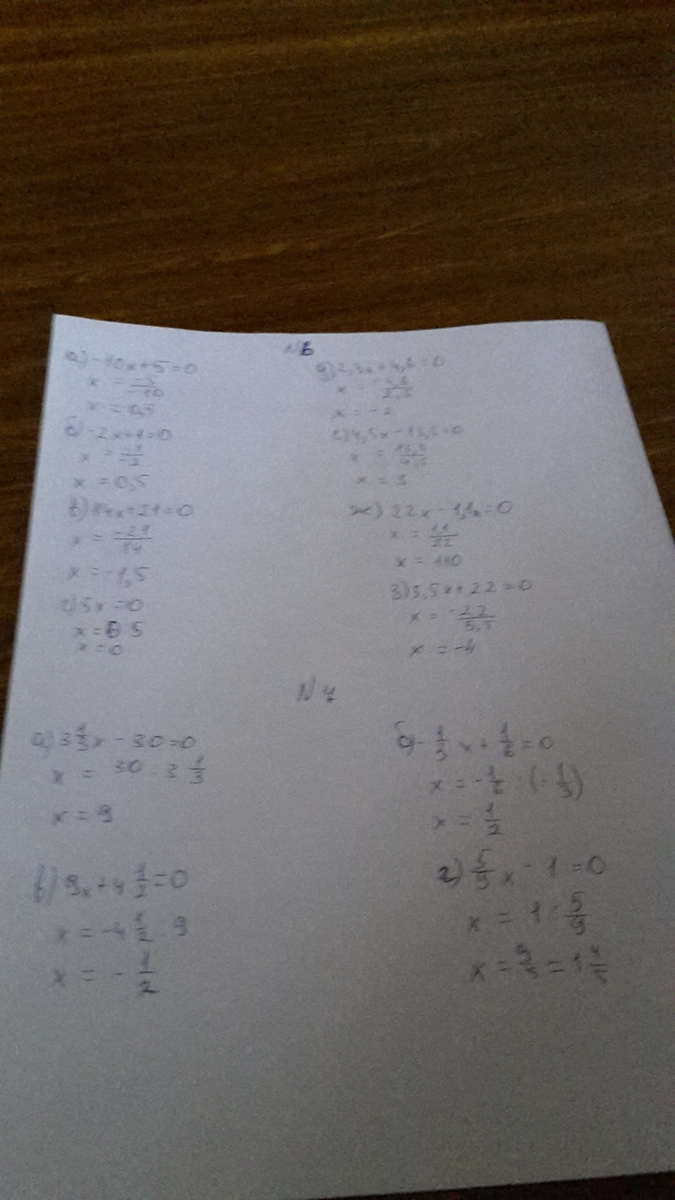 N6
а) -10x+5=0
x = -5/-10
x = 0,5
б) -2x+1=0
x = -1/-2
x = 0,5
в) 14x+21=0
x = -21/14
x = -1,5
г) 5x=0
x=0 5
x=0
д) 2,3x+4,6=0
x = -4,6/2,3
x = -2
е) 4,5x-13,5=0
x = 13,5/4,5
x = 3
ж) 22x-1,1x=0
x = 1,1/22
x = 110
з) 5,5x+22=0
x = -22/5,5
x = -4
N 7
а) 3 1/3 x - 30=0
x = 30 : 3 1/3
x = 9
б) -1/3 x + 1/6 = 0
x = -1/6 : (-1/3)
x = 1/2
в) 9x+4 1/2=0
x = -4 1/2 : 9
x = - 1/2
г) 5/9 x - 1 = 0
x = 1 : 5/9
x = 9/5 = 1 4/5